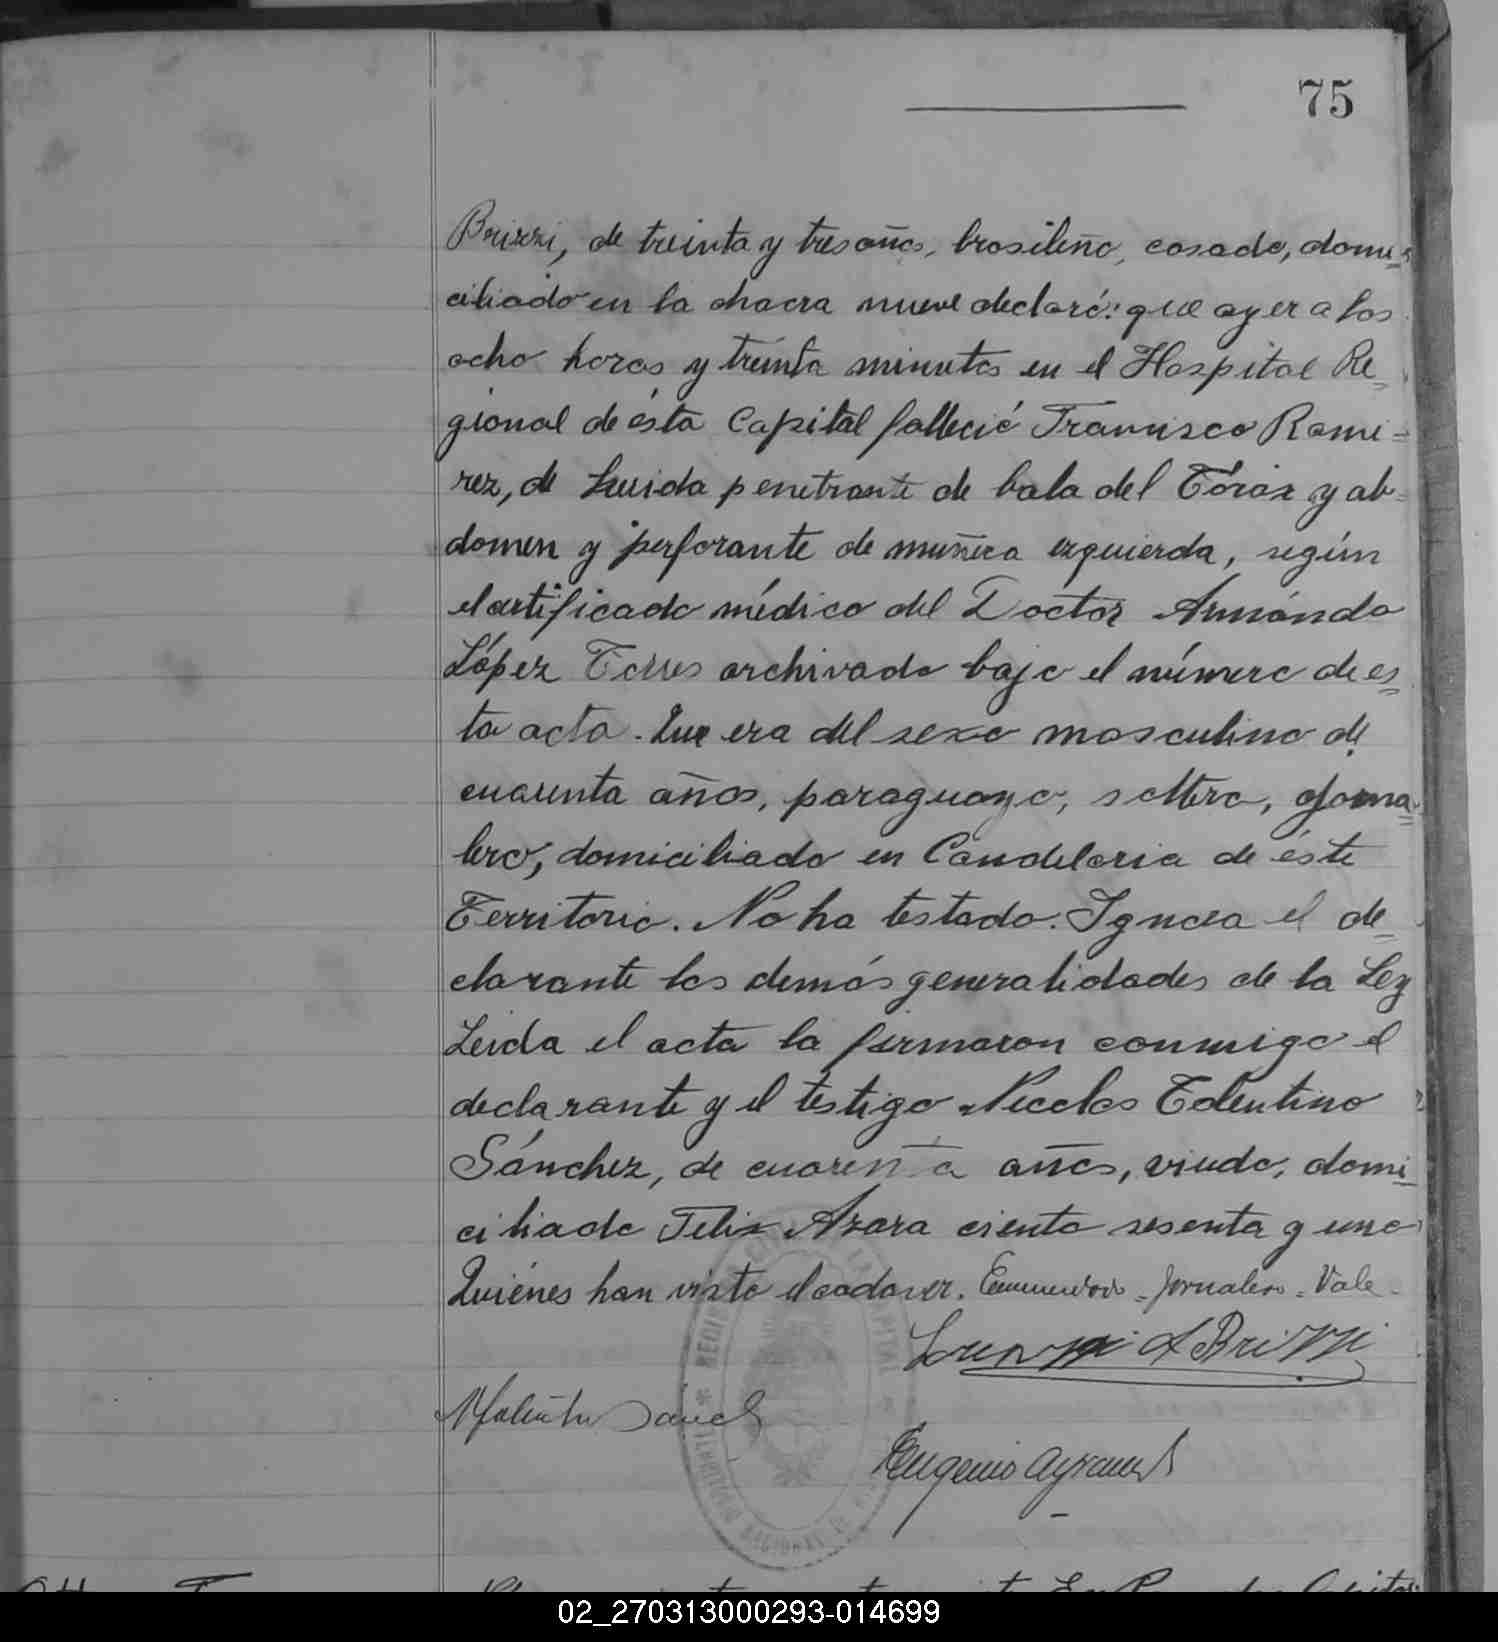 75
Brizzi, de treinta y tres años, brasileño, casado, domi=
ciliado en la chacra nueve declaró: que ayer a las
ocho horas y treinta minutos en el Hospital Re=
gional de ésta Capital falleció Francisco Rami=
rez, de herida penetrante de bala del Tórax y ab=
domen y perforante de muñeca izquierda, según
el certificado médico del Doctor Armando
López Torres archivado bajo el número de es=
ta acta. Que era del sexo masculino de
cuarenta años, paraguayo, soltero, jorna=
lero, domiciliado en Candelaria de éste
Territorio. No ha testado. Ignora el de=
clarante las demás generalidades de la Ley
Leida el acta la firmaron conmigo el
declarante y el testigo Nicolas Tolentino
Sánchez, de cuarenta años, viudo, domi=
ciliado Felix Azara ciento sesenta y uno
Quiénes han visto el cadaver. Enmendado = Jornalero = Vale =
A Brizzi
Eugenio
02_270313000293-014699